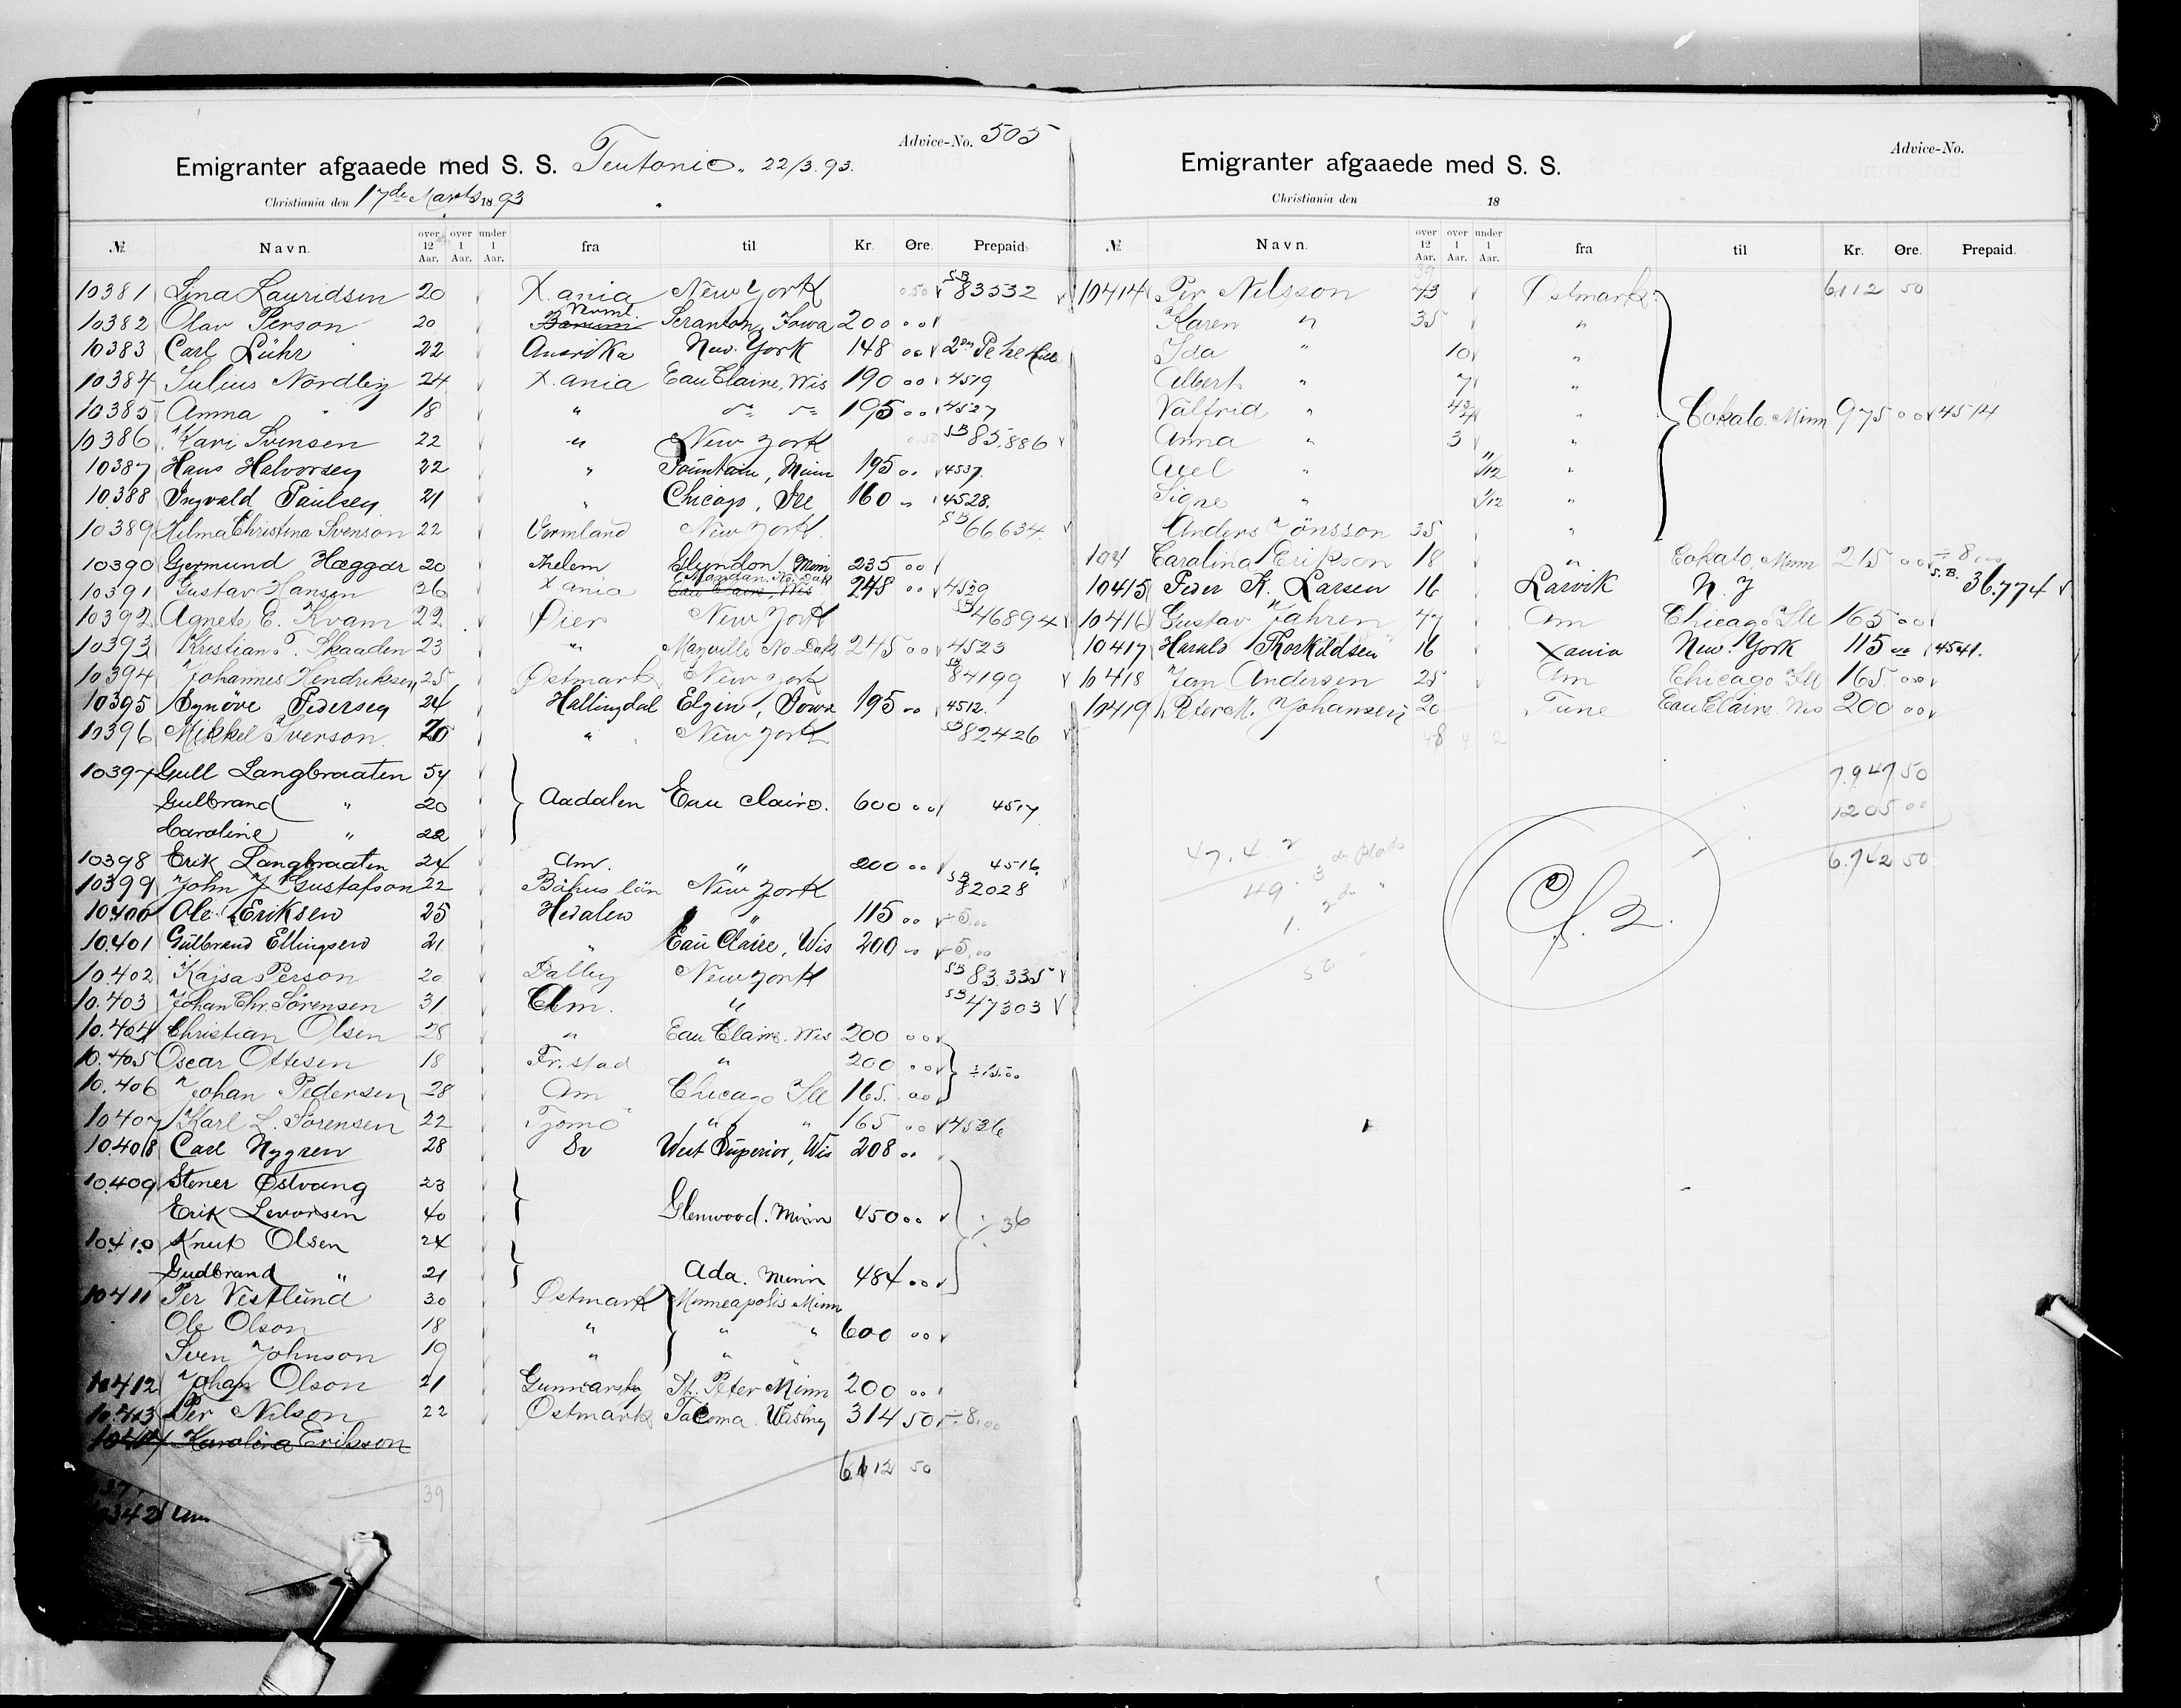 Advice-No. 505
Emigranter afgaaede med S. S. Teutonic. 22/3.93.
Christiania den 17de Marts 1893
№ Navn. over 12 Aar. over 1 Aar. under 1 Aar. fra til Kr. Øre. Prepaid.
10381 Lina Lauridsen 20 X.ania New York 0.50 SB 83532
10382 Olav Person 20 Scranton, Iowa 200 00
10383 Carl Lühr 22 Amerika New York 148 00 2den
10384 Julius Nordby 24 X.ania Eau Claire, Wis 190 00 4519
10385 Anna " 18 " do do 195 00 4527
10386 Kari Svensen 22 " New York 0.50 SB 85.886
10387 Hans Halvorsen 22 " Fountain, Minn 195 00 4537.
10388 Ingvald Paulsen 21 " Chicago, Ill 160 " 4528.
10389 Hilma Christina Svenson 22 Vermland New York SB 66634.
10390 Gjermund Hæggar 20 Thelem Glyndon Minn 235 00
10391 Gustav Hansen 26 Xania Mandan No. Dak Eau Claire, Wis 248 00 4529
10392 Agnete E. Kvam 22 Øier New York SB 46894
10393 Kristian T. Skaaden 23 " Mayville No. Dak 245 00 4523
10394 Johannes Hendriksen 25 Østmark New York SB 84199
10395 Synöve Pedersen 24 Hallingdal Elgin, Iowa 195 00 4512.
10396 Mikkel Iverson 20 " New York SB 82426
10397 Gull Langbraaten 54
Gulbrand " 20 Aadalen Eau Claire. 600 00 4517
Caroline " 22
10398 Erik Langbraaten 24 Am. " 200 00 4516.
10399 John J. Gustafson 22 Båhus län New York SB 82028
10400 Ole Eriksen 25 Hedalen " 115 00 ÷5.00
10.401 Gulbrand Ellingsen 21 " Eau Claire, Wis 200 00 ÷5.00
10.402 Kajsa Person 20 Dalby New York SB 83.335
10.403 Johan Chr. Sörensen 31 Am. " SB 47303
10.404 Christian Olsen 28 " Eau Claire, Wis 200 00
10.405 Oscar Ottesen 18 Fr.stad " 200 00
10.406 Johan Pedersen 28 Am Chicago Ill 165. 00 ÷15.00
10407 Karl L. Sörensen 22 Tjømö " " 165 00 4536
10.408 Carl Nygren 28 Sv West Superior, Wis 208 00
10.409 Stener Østvang 23
Erik Levorsen 40 Glenwood. Minn 450 00 ÷36
10.410 Knut Olsen 24
Gudbrand " 21 Ada. Minn 484 00
10411 Per Vestlund 30 Østmark Minneapolis Minn
Ole Olson 18 " " " 600 00
Sven Johnson 19 " "
10412 Johan Olson 21 Gunnarsby St. Peter Minn 200 00
10.413 Per Nilson 22 Østmark Tacoma. Washing 314 50 ÷8.00
10414 Karolina Eriksson
6112 50
39
Advice-No.
Emigranter afgaaede med S. S.
Christiania den 18
№ Navn. over 12 Aar. over 1 Aar. under 1 Aar. fra til Kr. Øre. Prepaid.
39 6112 50
10414 Per Nilsson 43 Østmark
Karen " 35 "
Ida " 10 "
Albert " 7 "
Valfrid " 4 " Cokato. Minn 975 00 4514
Anna " 3 "
Axel " 11/12 "
Signe " 1/12 "
Anders Jönsson 35 "
Carolina Erikson 18 " Cokato, Minn 215 00 ÷8.00
10415 Peder K. Larsen 16 Larvik N. Y S.B. 36.774
10416 Gustav Jahren 47 Am Chicago Ill 165 00
10417 Harald Thorkildsen 16 Xania New York 115 00 4541.
10418 Jan Andersen 25 Am Chicago Ill 165. 00
10419 Peter M. Johansen 20 Tune Eau Claire Wis 200 00
48 4 2
7.947 50
1205 00
6.742 50
47. 4 2
49. 3de Plads
1. 2de "
50
Cf. 2.